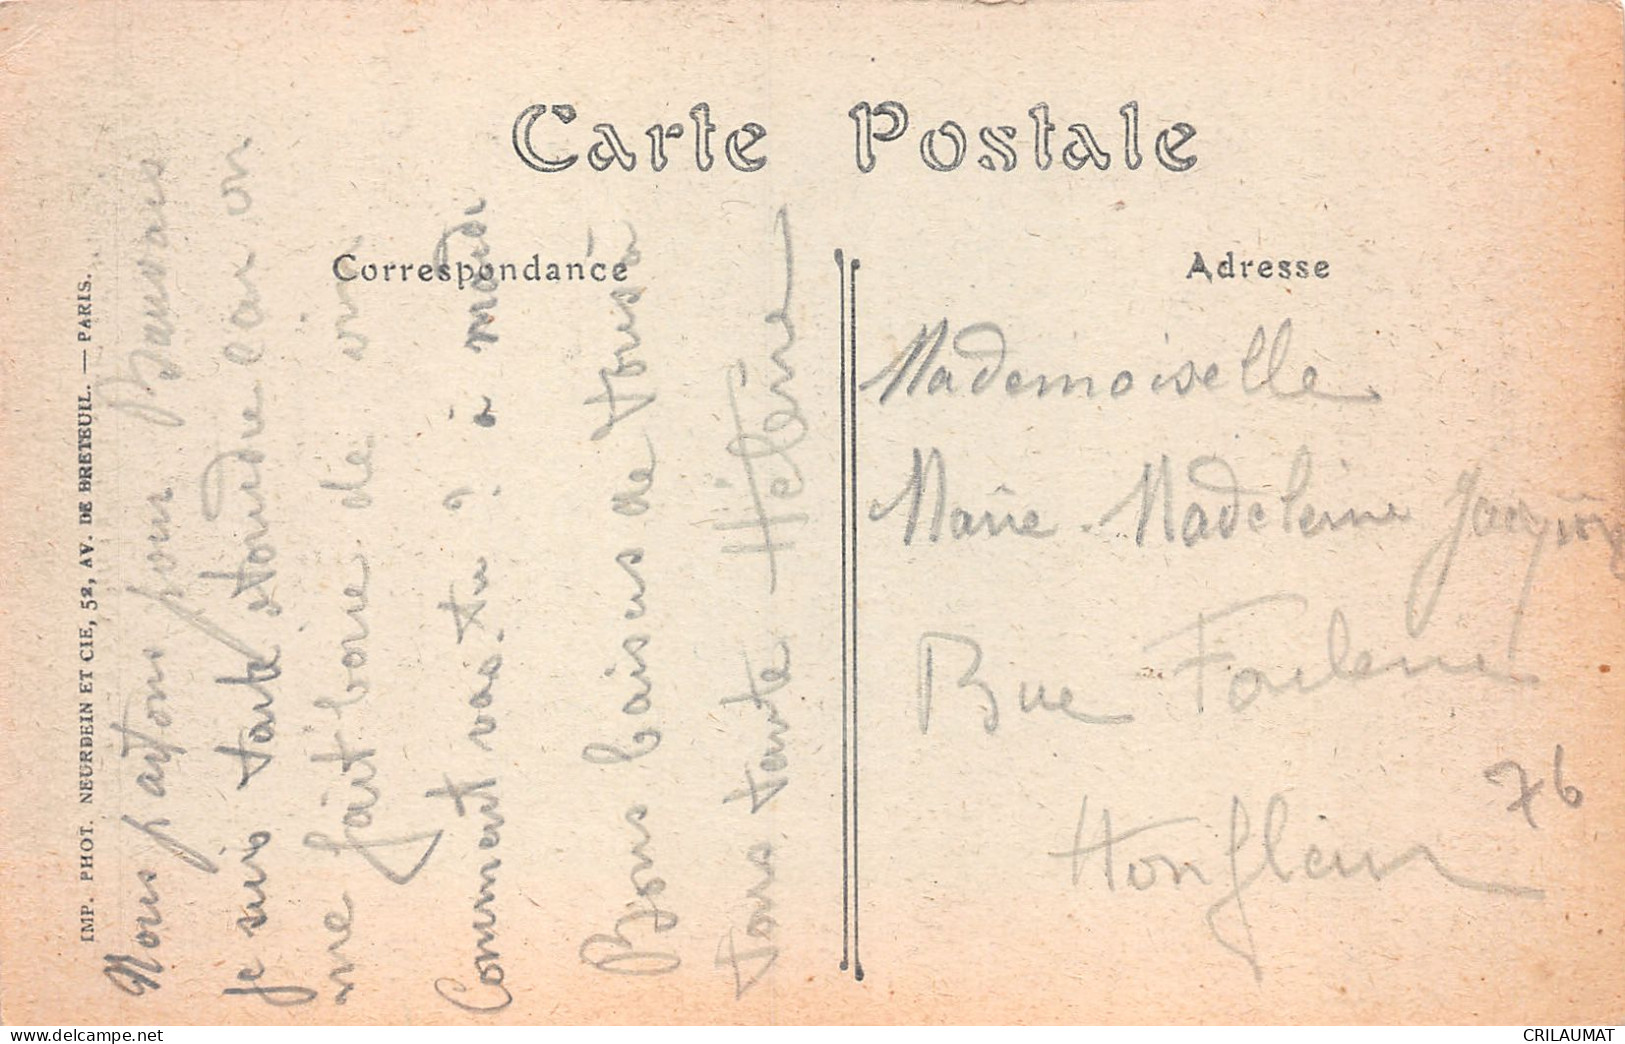 Carte Postale
Correspondance
Adresse
IMP. PHOT. NEURDEIN ET CIE, 52, AV. DE BRETEUIL. — PARIS.
Nous partons pour Beauvais
je suis toute étourdie car on
me fait boire de vin
Comment vas-tu ? à mardi
Bons baisers de tous à
tous tante Hélène
Mademoiselle
Marie-Madeleine
Rue
Honfleur
76
www.delcampe.net
CRILAUMAT